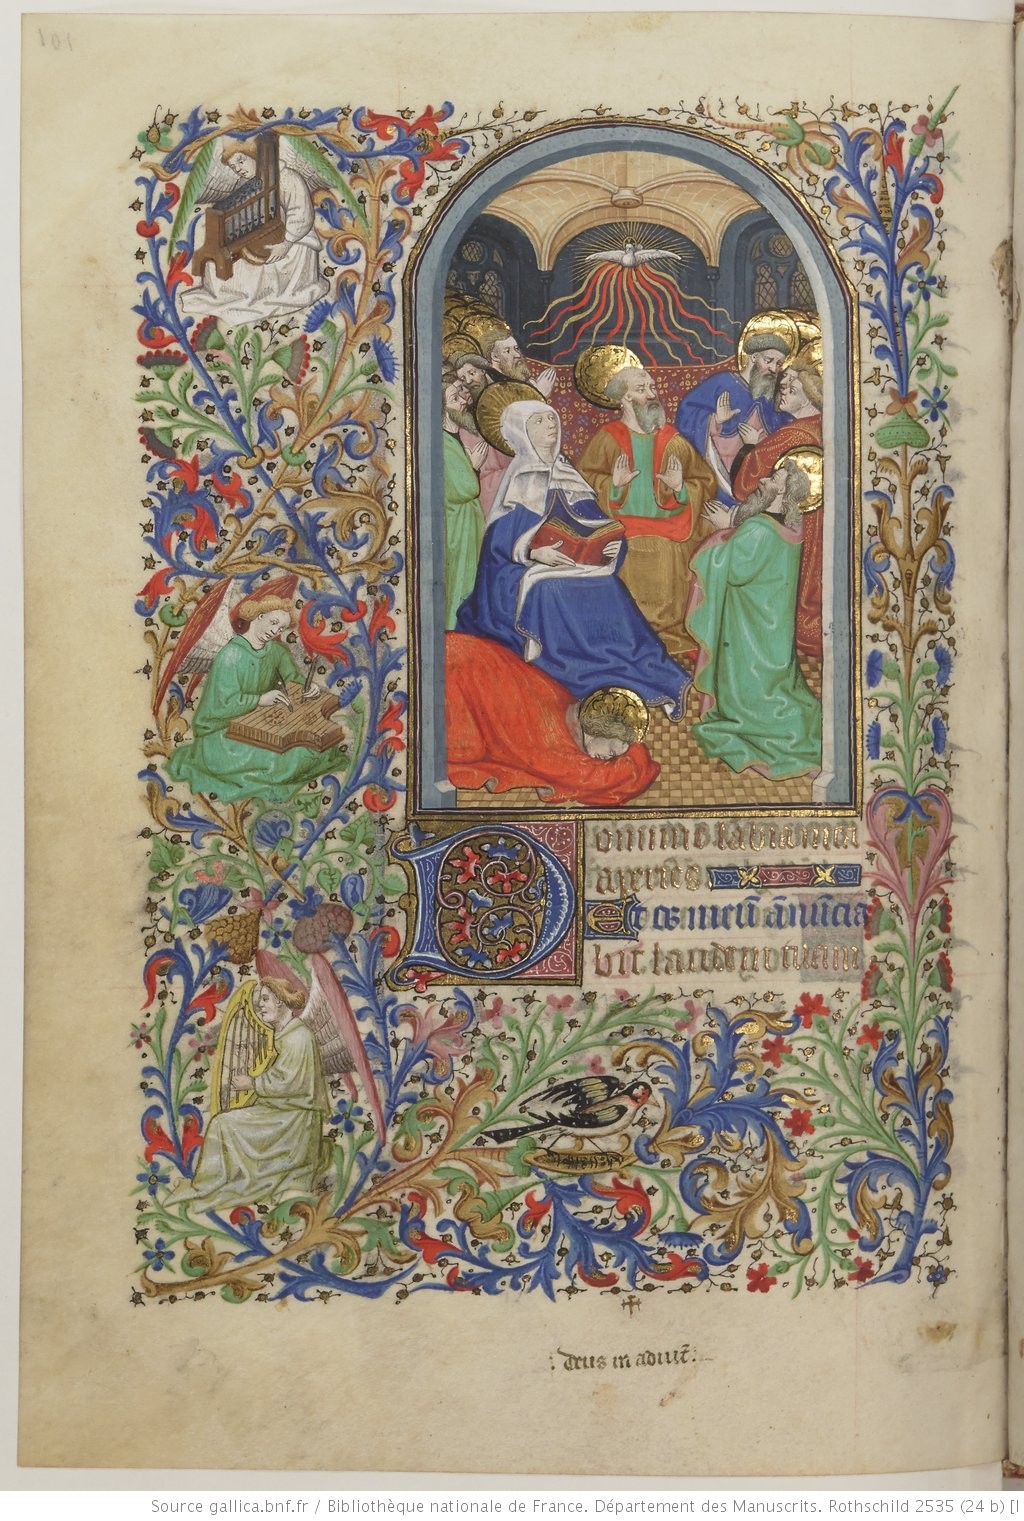 101
Domine labia mea
aperies
Et os meū ānūcia
bit laudem tuam
: deus in adiut̄ :
Source gallica.bnf.fr / Bibliothèque nationale de France. Département des Manuscrits. Rothschild 2535 (24 b) [I